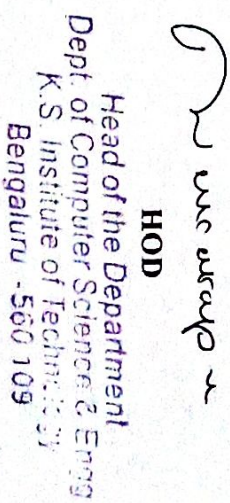 HOD
Head of the Department
Dept. of Computer Science & Engg
K.S. Institute of Technology
Bengaluru - 560 109